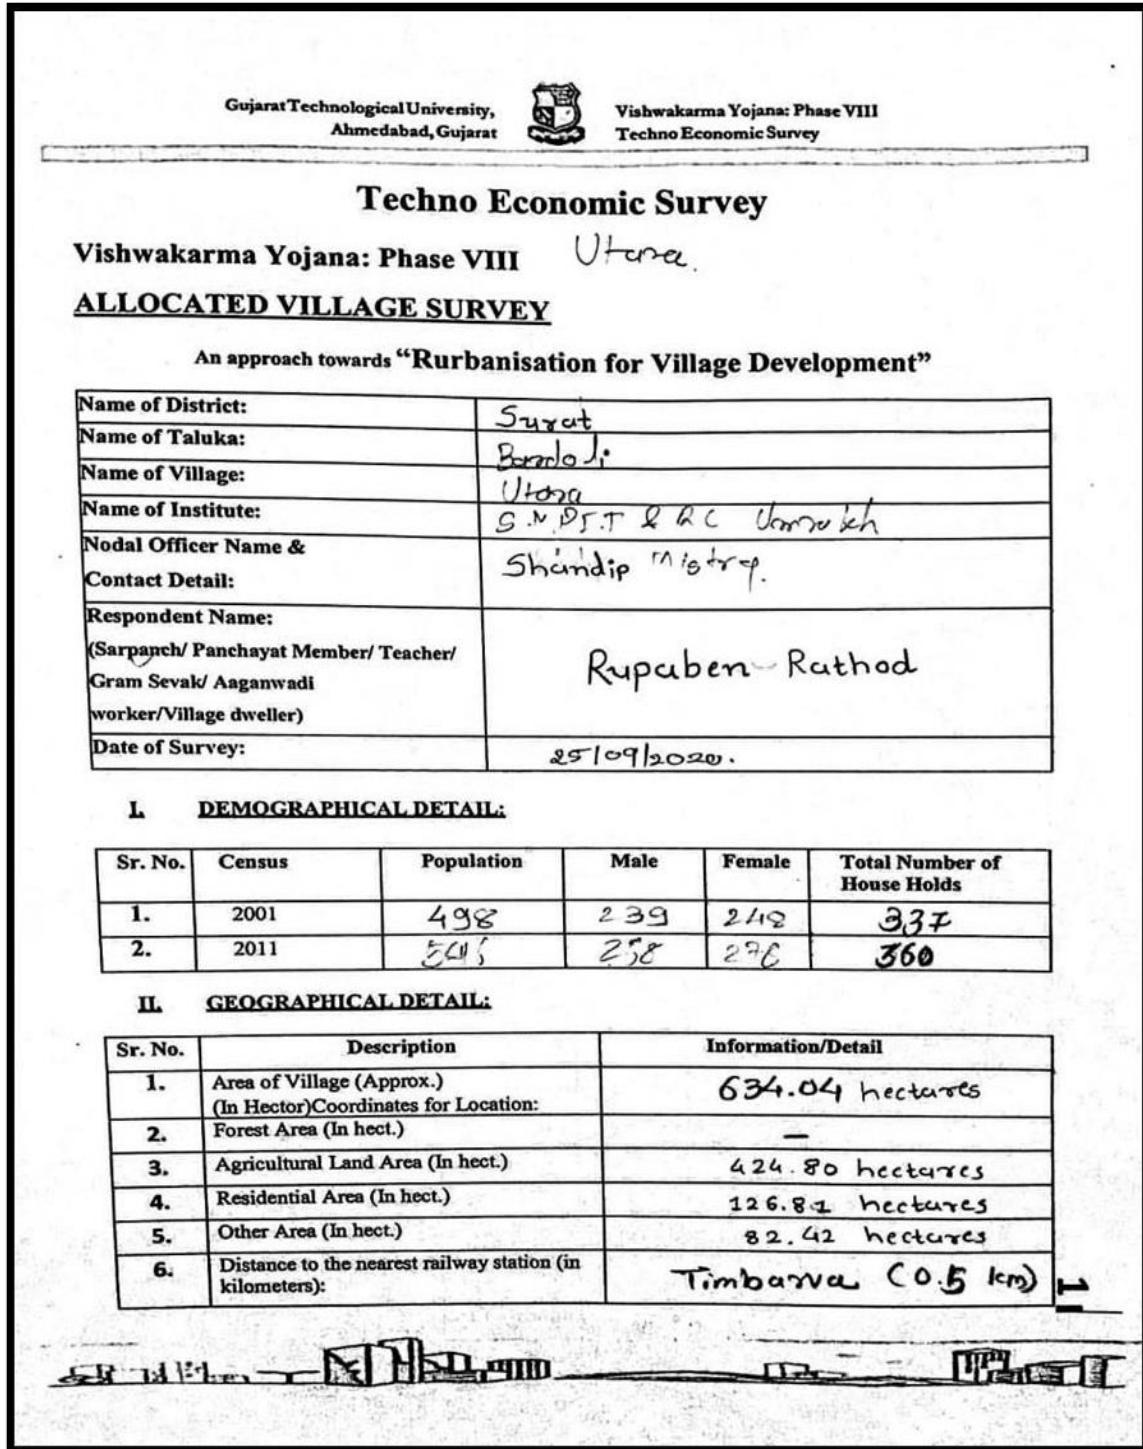 Gujarat Technological University,
Ahmedabad, Gujarat
Vishwakarma Yojana: Phase VIII
Techno Economic Survey
Techno Economic Survey
Vishwakarma Yojana: Phase VIII Utara.
ALLOCATED VILLAGE SURVEY
An approach towards “Rurbanisation for Village Development”
Name of District: Surat
Name of Taluka: Bardoli
Name of Village: Utara
Name of Institute: S.N.PIT & RC Umrakh
Nodal Officer Name &
Contact Detail: Shandip Mistry.
Respondent Name:
(Sarpanch/ Panchayat Member/ Teacher/
Gram Sevak/ Aaganwadi
worker/Village dweller)
Rupaben Rathod
Date of Survey: 25/09/2020.
I. DEMOGRAPHICAL DETAIL:
Sr. No. Census Population Male Female Total Number of House Holds
1. 2001 498 239 248 337
2. 2011 258 360
II. GEOGRAPHICAL DETAIL:
Sr. No. Description Information/Detail
1. Area of Village (Approx.)
(In Hector)Coordinates for Location: 634.04 hectares
2. Forest Area (In hect.) —
3. Agricultural Land Area (In hect.) 424.80 hectares
4. Residential Area (In hect.) 126.81 hectares
5. Other Area (In hect.) 82.42 hectares
6. Distance to the nearest railway station (in
kilometers): Timbarva (0.5 km)
1